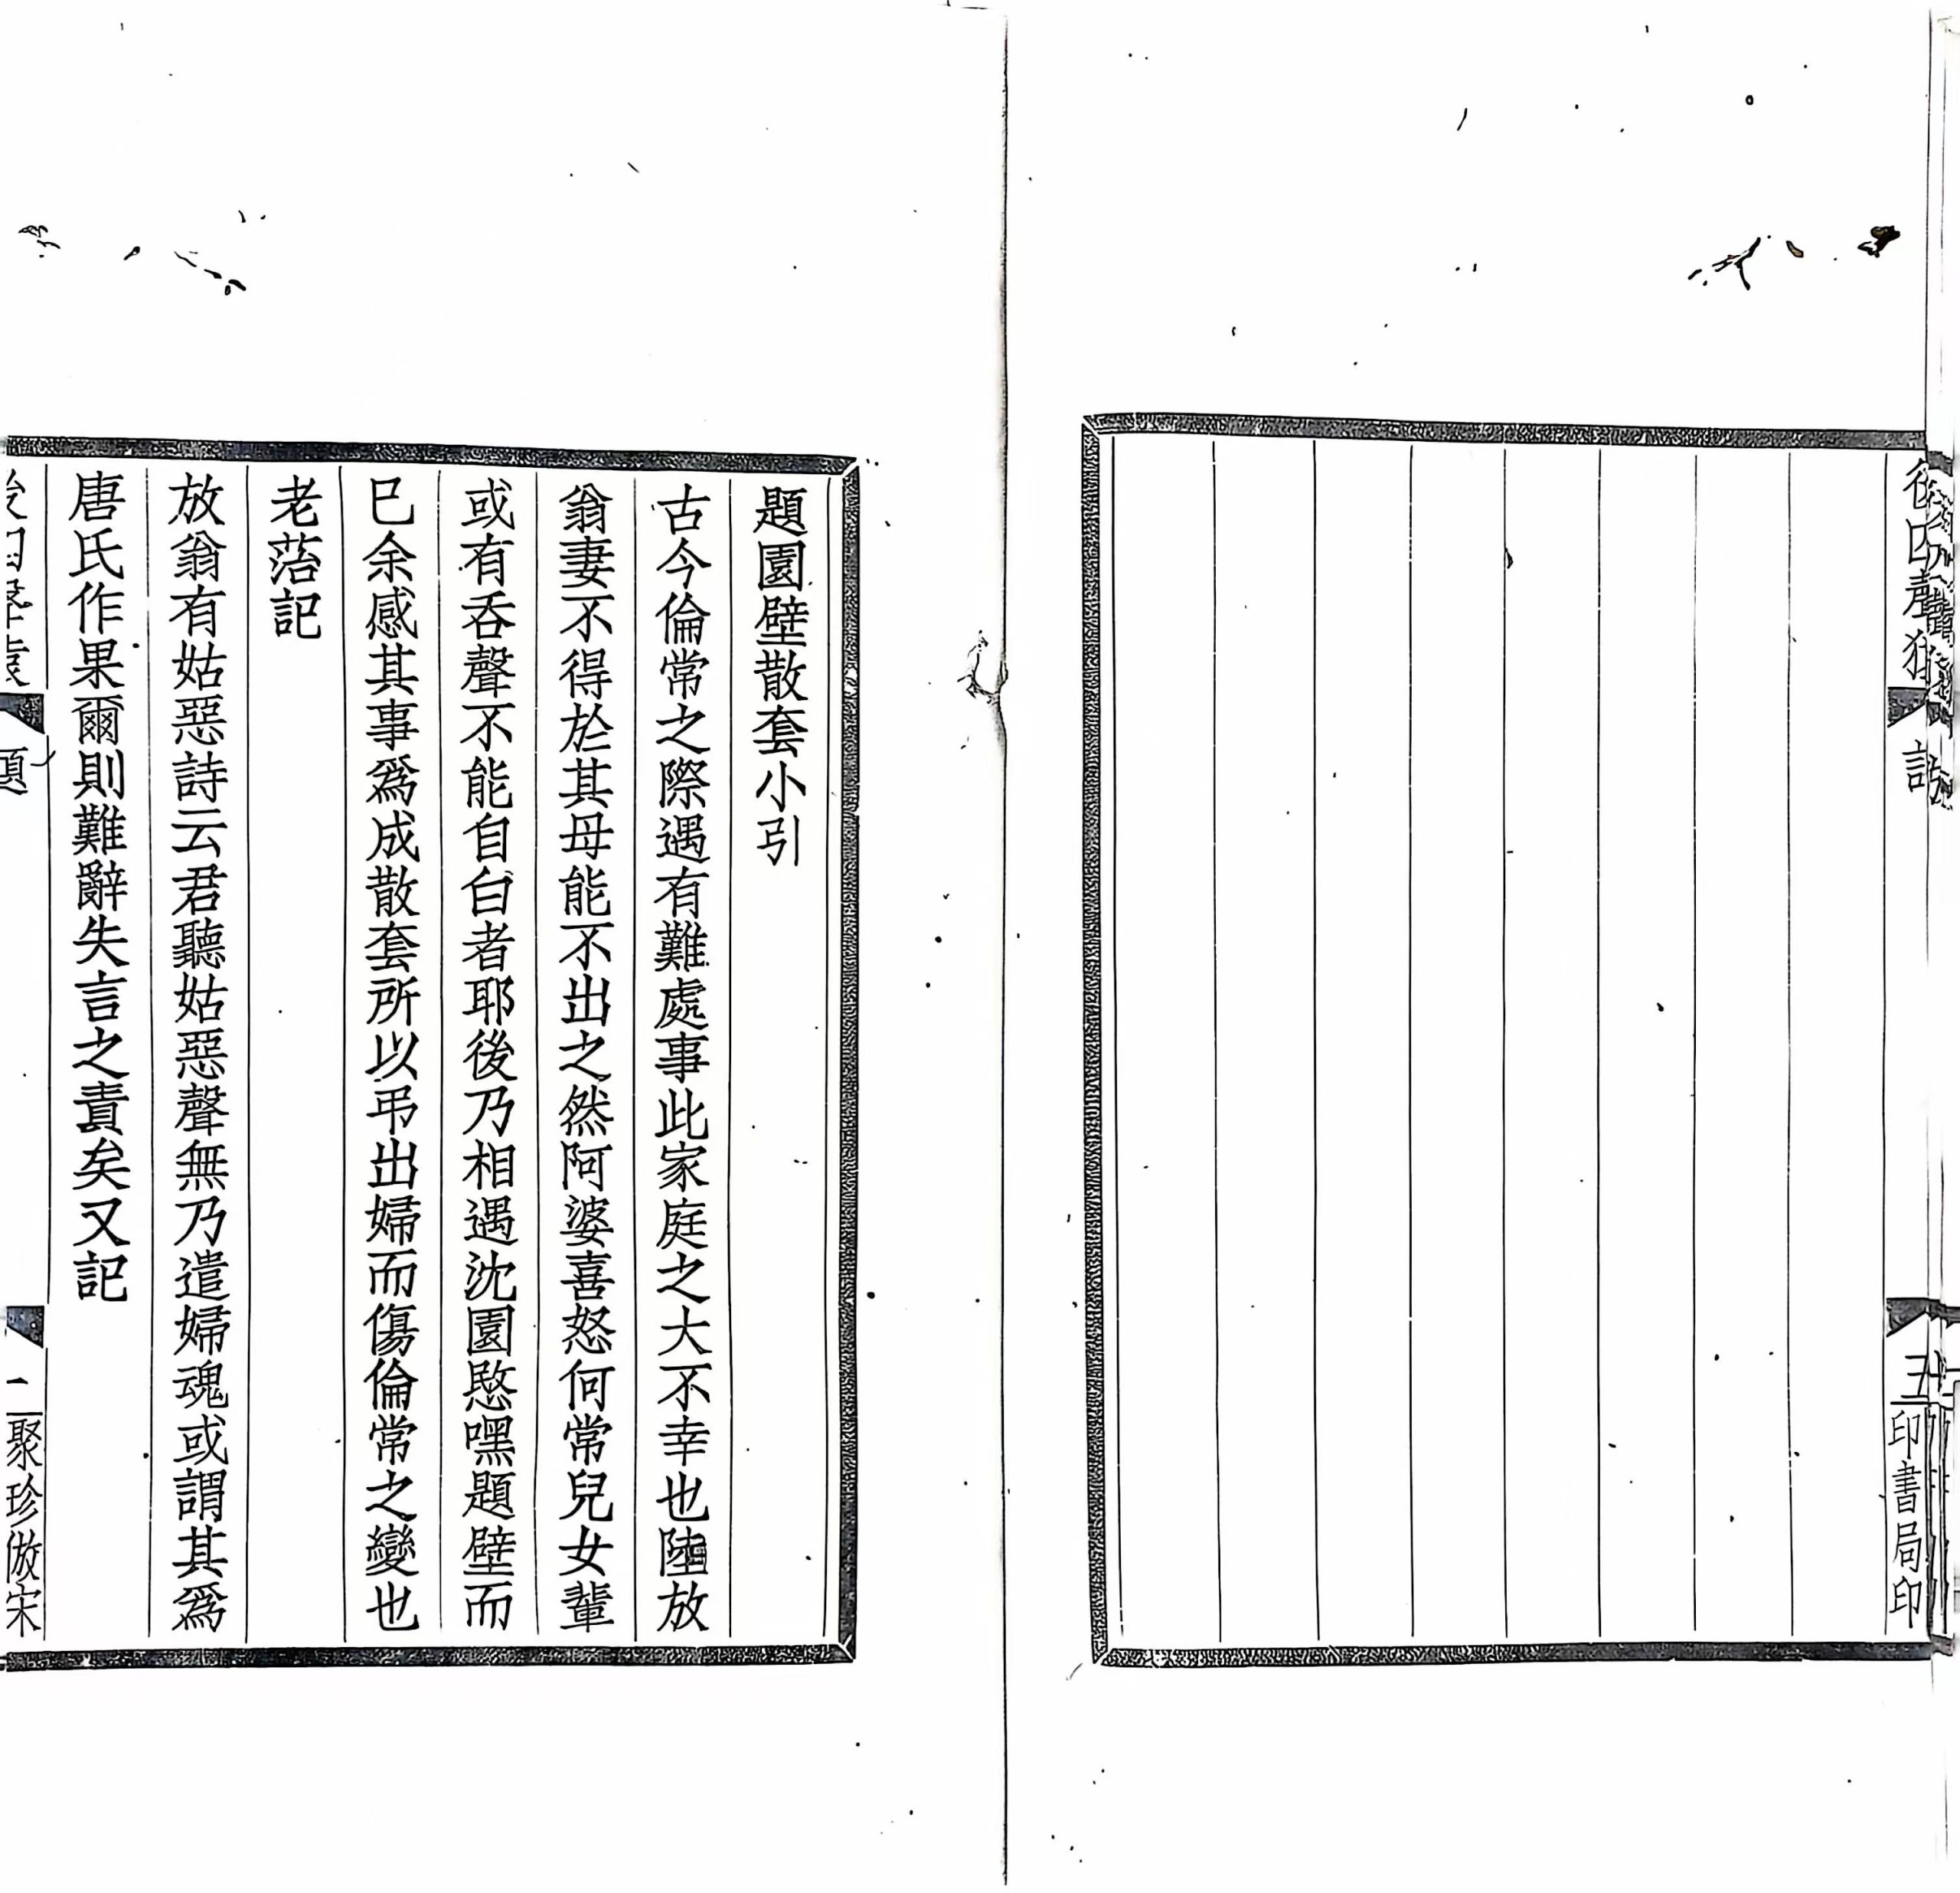 訪
五
印書局印
題園壁散套小引
古今倫常之際遇有難處事此家庭之大不幸也陸放
翁妻不得於其母能不出之然阿婆喜怒何常兒女輩
或有吞聲不能自白者耶後乃相遇沈園愍嘿題壁而
已余感其事爲成散套所以弔出婦而傷倫常之變也
老萿記
放翁有姑惡詩云君聽姑惡聲無乃遣婦魂或謂其爲
唐氏作果爾則難辭失言之責矣又記
題
聚珍倣宋